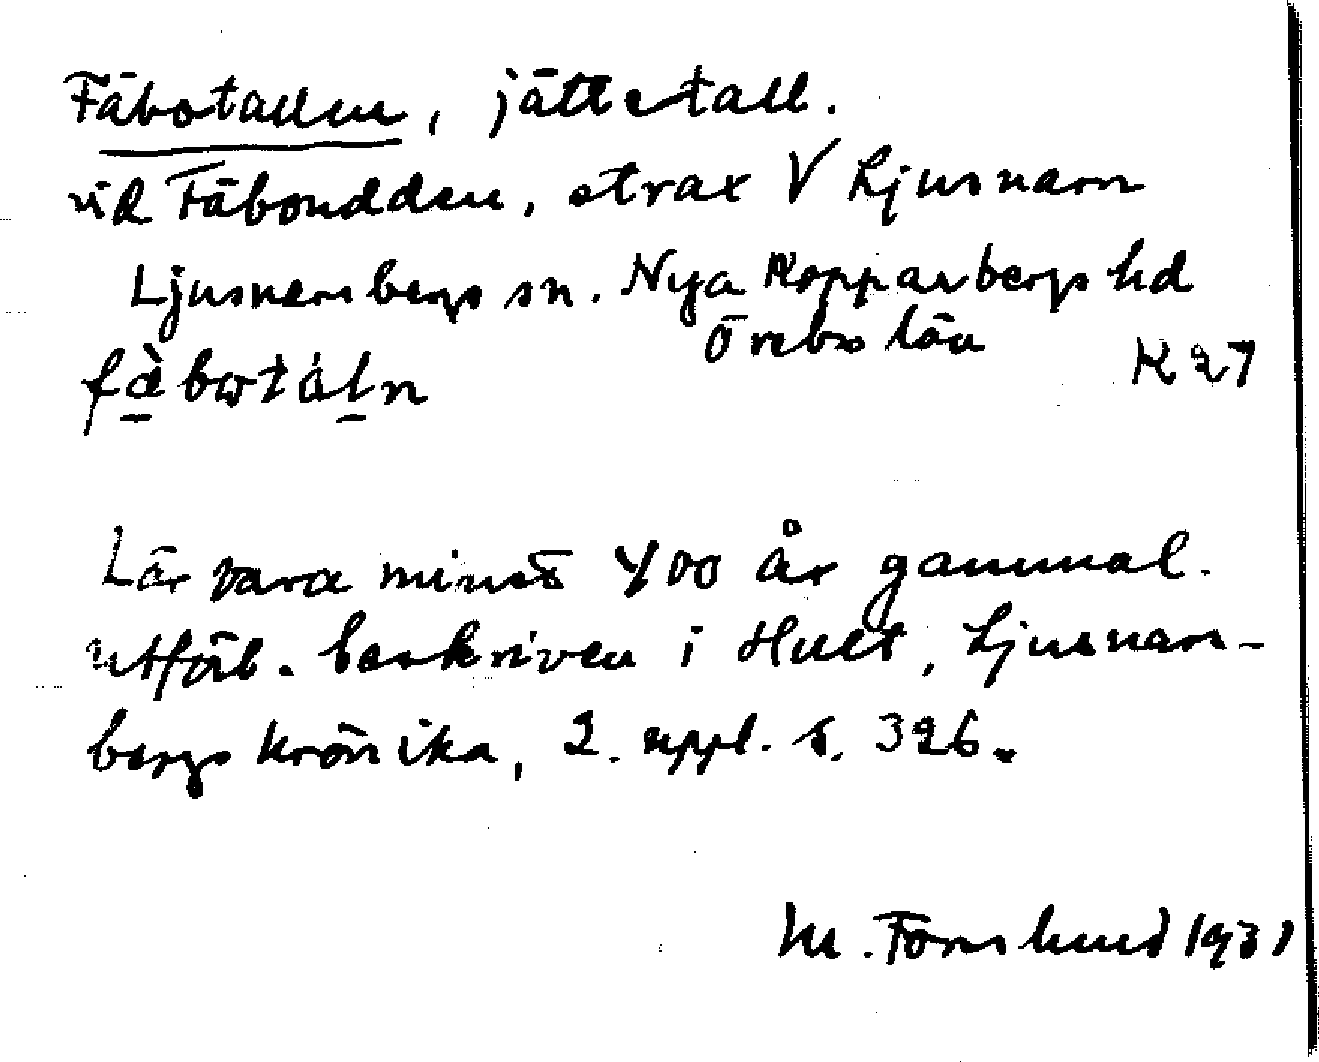 Fäbotallen, jättetall.
vid Fäboudden, strax V Ljusnarn
Ljusnarsbergs sn. Nya Kopparbergs hd
Örebro län K 27
fæ̀botáln
Lär vara minst 400 år gammal.
utförl. beskriven i Hult, Ljusnars-
bergs krönika, 2. uppl. s. 326.
M. Törnslund 1931